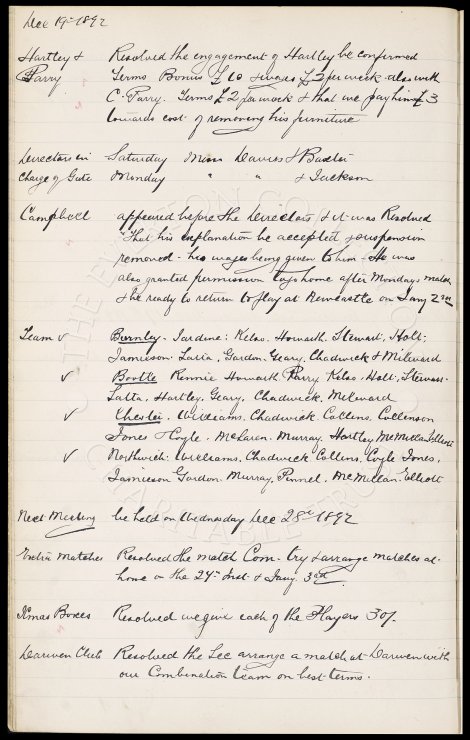 Dec 19th 1892
Hartley & Resolved the engagement of Hartley be confirmed
Parry Terms Bonus £10 & wages £3 per week also with
C. Parry. Terms £2 per week & that we pay him £3
towards cost of removing his furniture
Directors in Saturday Messrs Davies & Baxter
Charge of Gate Monday " " & Jackson
Campbell appeared before the Directors & it was Resolved
That his explanation be accepted & suspension
removed - his wages being given to him - He was
also granted permission to go home after Mondays match
& be ready to return to play at Newcastle on Jany 2nd
Team v Burnley. Jardine: Kelso. Howarth. Stewart. Holt:
Jamieson. Latta. Gordon. Geary. Chadwick & Milward
v Bootle Rennie Howarth Parry Kelso. Holt. Stewart.
Latta. Hartley. Geary. Chadwick. Milward
v Chester. Williams. Chadwick. Collins. Collinson
Jones Coyle. McLaren. Murray. Hartley McMillan Elliott
v Northwich. Williams. Chadwick Collins. Coyle Jones.
Jamieson Gordon. Murray. Pinnel. McMillan. Elliott
Next Meeting be held on Wednesday Dec 28th 1892
Extra Matches Resolved the match Com. try & arrange matches at
home on the 24th Inst & Jany 3rd
Xmas Boxes Resolved we give each of the Players 30/.
Darwen Club Resolved the Sec arrange a match at Darwen with
our Combination team on best terms.
THE EVERTON CO
CHARITABLE TRUST